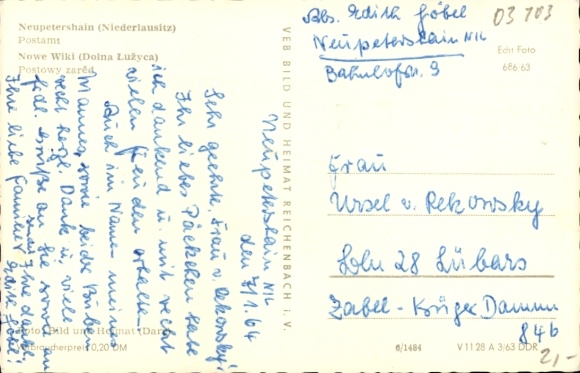 Neupetershain (Niederlausitz)
Postamt
Nowe Wiki (Dolna Łužyca)
Postowy zarěd
Abs. Edith Göbel
Neupetershain N/L
Bahnhofstr. 3
03 703
Edit Foto
686 63
VEB BILD UND HEIMAT REICHENBACH i. V.
Neupetershain N/L
den 7/1.64
Sehr geehrte Frau v. Rekowsky!
Ihr liebes Päckchen habe
ich dankend u. mit recht
vielen Freuden erhalten.
Auch im Namen meines
Mannes, sowie beide Buben
recht herzl. Dank u. viele
frdl. Grüße an Sie sowie an
Ihre liebe Familie
Ihre dankb.
Edith Göbel!
Frau
Ursel v. Rekowsky
Bln 28 Lübars
Zabel-Krüger Damm
84b
Foto: Bild und Heimat
Verbraucherpreis 0,20 DM
6/1484
V 11 28 A 3/63 DDR
2,-